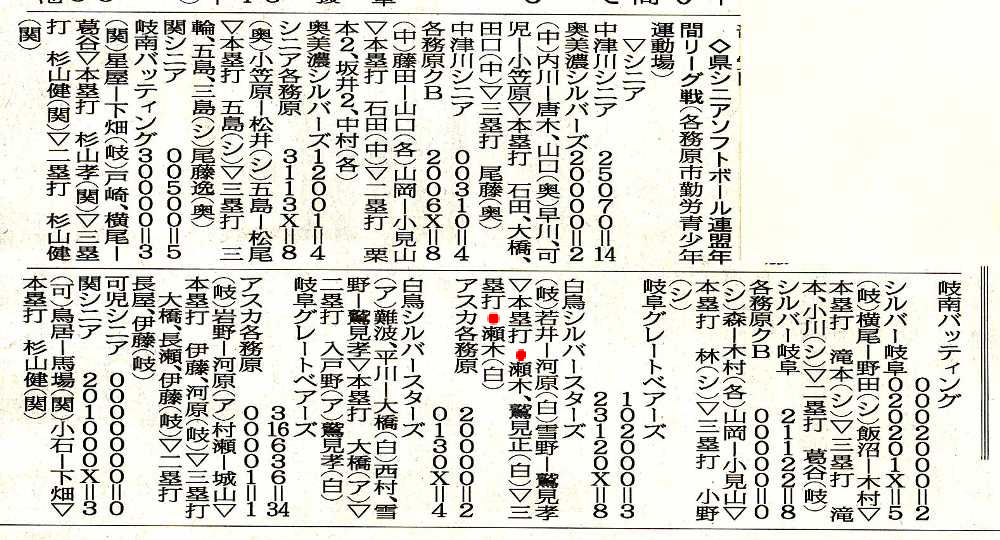 ◇県シニアソフトボール連盟年
間リーグ戦(各務原市勤労青少年
運動場)
▽シニア
中津川シニア 25070＝14
奥美濃シルバーズ20000＝2
(中)内川ー唐木、山口(奥)早川、可
児ー小笠原▽本塁打 石田、大橋、
田口(中)▽三塁打 尾藤(奥)
中津川シニア 00310＝4
各務原クB 2006X＝8
(中)藤田ー山口(各)山岡ー小見山
▽本塁打 石田(中)▽二塁打 栗
本2、坂井2、中村(各)
奥美濃シルバーズ12001＝4
シニア各務原 3113X＝8
(奥)小笠原ー松井(シ)五島ー松尾
▽本塁打 五島(シ)▽三塁打 三
輪、五島、三島(シ)尾藤逸(奥)
関シニア 00500＝5
岐南バッティング300000＝3
(関)星屋ー下畑(岐)戸崎、横尾ー
葛谷▽本塁打 杉山孝(関)▽三塁
打 杉山健(関)▽二塁打 杉山健
(関)
岐南バッティング
0002000＝2
シルバー岐阜020201X＝5
(岐)横尾ー野田(シ)飯沼ー木村▽
本塁打 滝本(シ)▽三塁打 滝
本、小川(シ)▽二塁打 葛谷(岐)
シルバー岐阜 21122＝8
各務原クB 00000＝0
(シ)森ー木村(各)山岡ー小見山▽
本塁打 林(シ)▽三塁打 小野
(シ)
岐阜グレートベアーズ
102000＝3
白鳥シルバースターズ
23120X＝8
(岐)若井ー河原(白)雪野ー鷲見孝
▽本塁打 瀬木、鷲見正(白)▽三
塁打 瀬木(白)
アスカ各務原 20000＝2
白鳥シルバースターズ
0130X＝4
(ア)難波、平川ー大橋(白)西村、雪
野ー鷲見孝▽本塁打 大橋(ア)▽
二塁打 入戸野(ア)鷲見孝(白)
岐阜グレートベアーズ
316636＝34
アスカ各務原 00001＝1
(岐)岩野ー河原(ア)村瀬ー城山▽
本塁打 伊藤、河原(岐)▽三塁打
大橋、長瀬、伊藤(岐)▽二塁打
長屋、伊藤(岐)
可児シニア 000000＝0
関シニア 201000X＝3
(可)鳥居ー馬場(関)小石ー下畑▽
本塁打 杉山健(関)